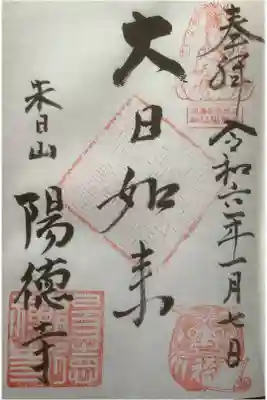 奉経 令和六年一月七日
大日如来
朱日山
陽徳寺